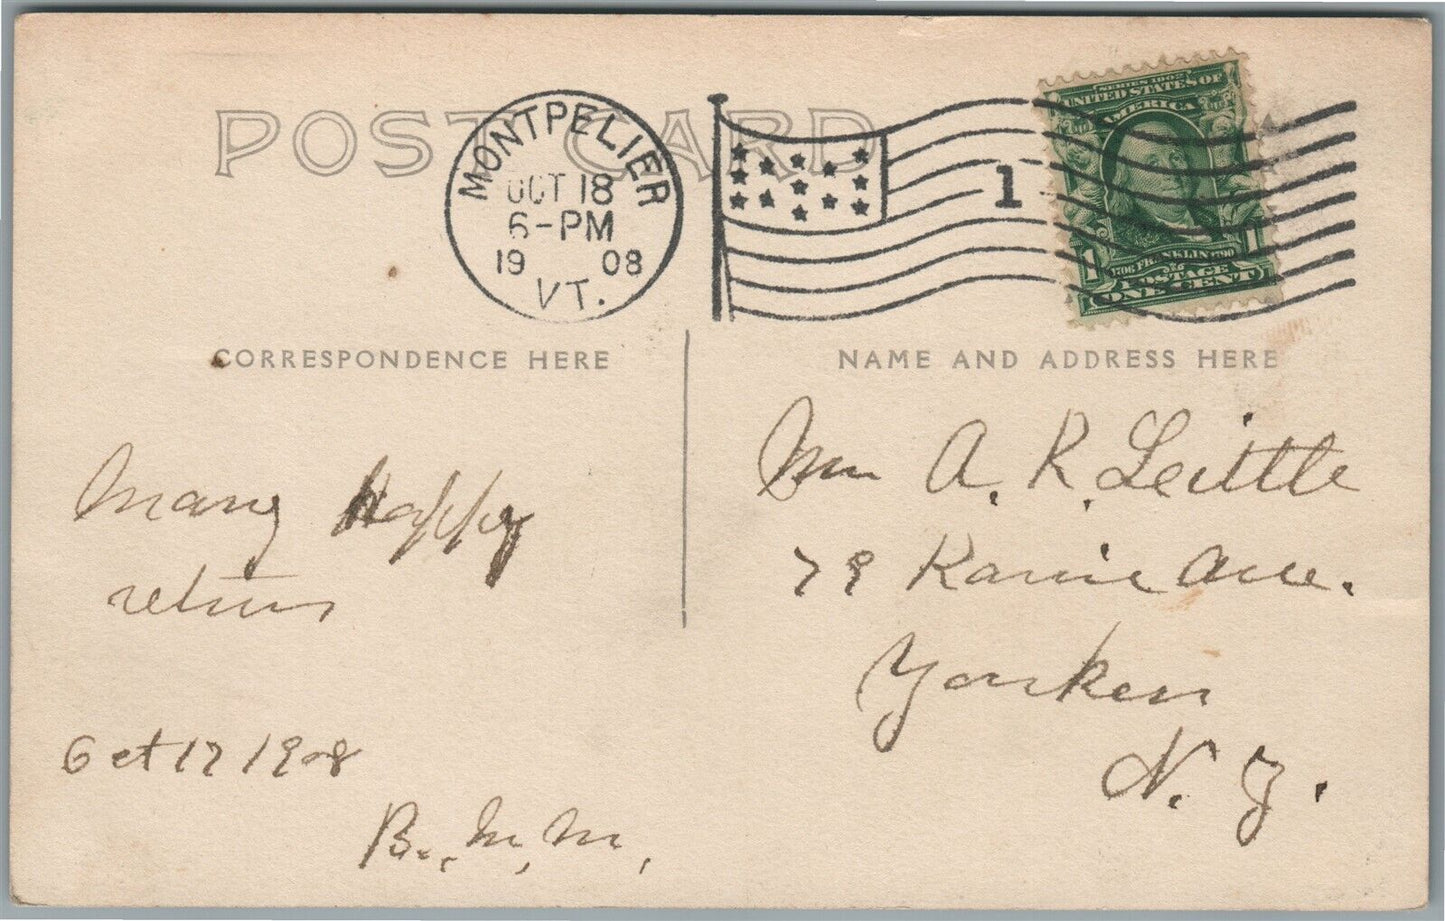 POST CARD
MONTPELIER
OCT 18
6-PM
19 08
VT.
1
SERIES 1902
UNITED STATES OF
AMERICA
1706 FRANKLIN 1790
1 1
POSTAGE
ONE CENT
CORRESPONDENCE HERE
NAME AND ADDRESS HERE
Many Happy
returns
Oct 17 1908
B. M. M.
A. R. Leittle
79 Ave.
Yonkers
N. Y.